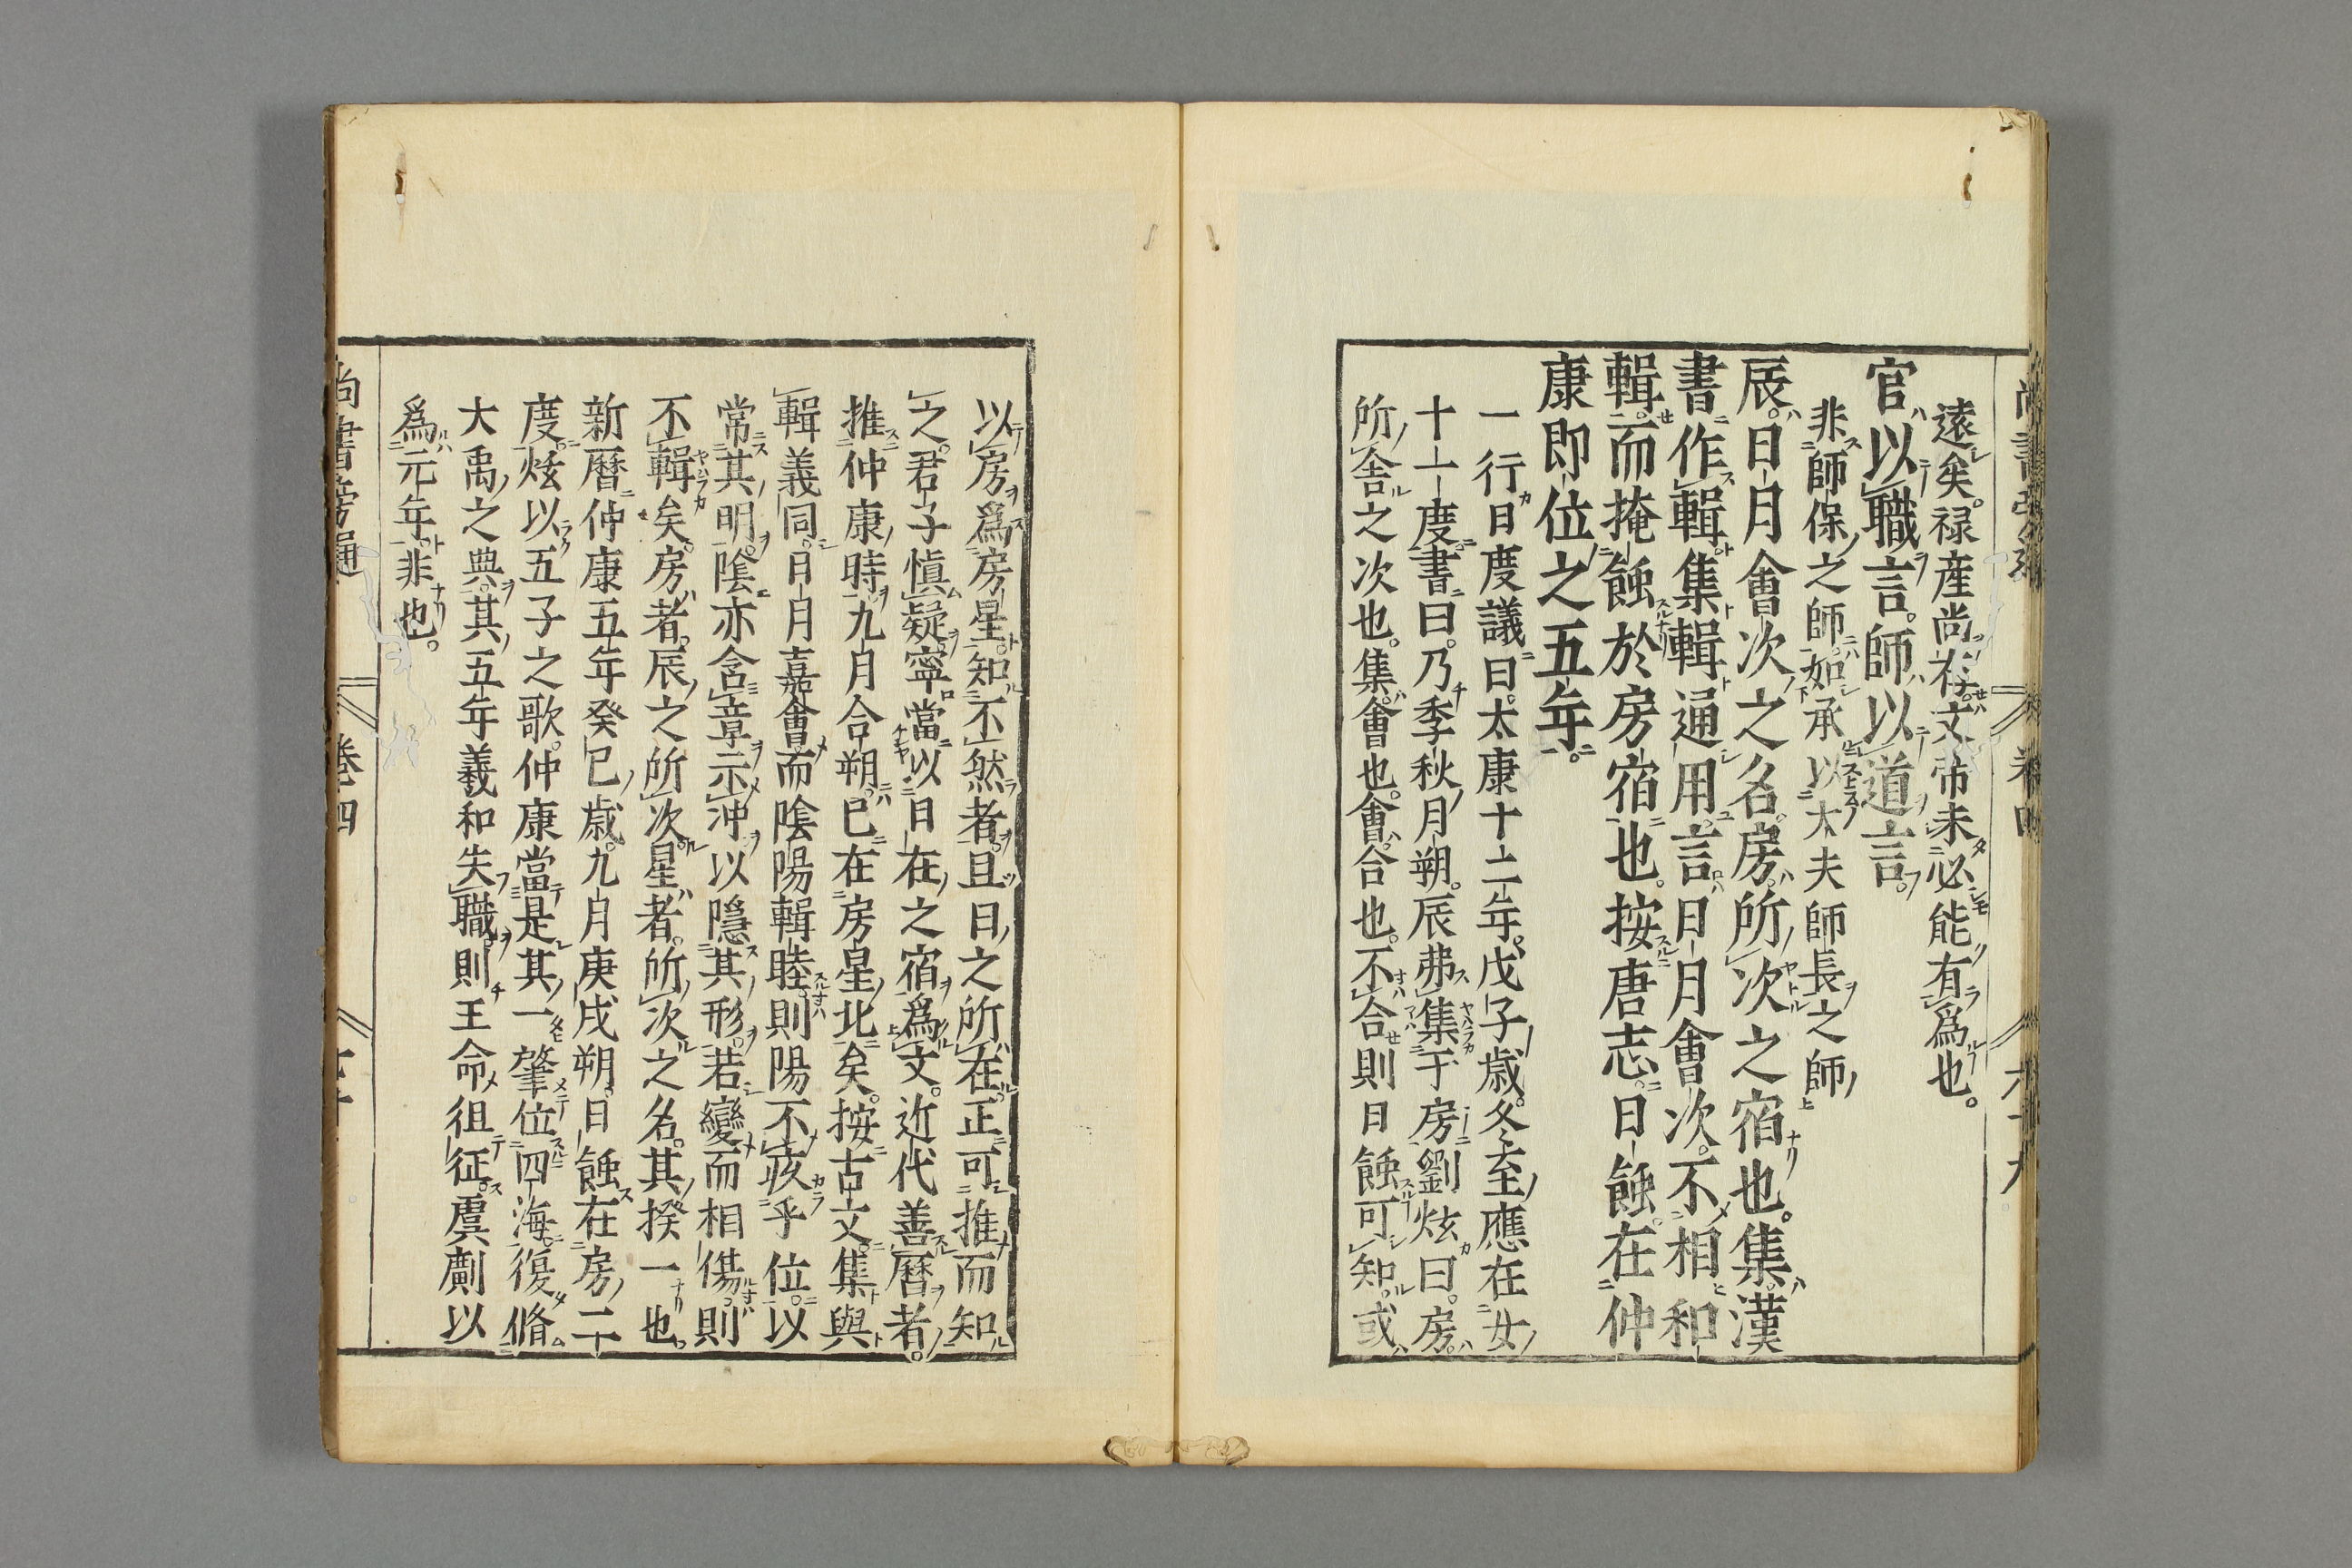 遠矣。禄産尚存。文帝未必能有爲也。
官以職言。師以道言。
非師保之師。如承以大夫師長之師
辰。日月會次之名。房。所次之宿也。集。漢
書作輯。集輯通用。言日月會次。不相和
輯。而掩蝕於房宿也。按唐志。日蝕在仲
康即位之五年。
一行日度議曰。太康十二年。戊子歳。冬至應在女
十一度。書曰。乃季秋月朔。辰弗集于房。劉炫曰。房。
所舎之次也。集。會也。會。合也。不合則日蝕可知。或
以房爲房星。知不然者。且日之所在。正可推而知
之。君子愼疑。寧當以日在之宿爲文。近代善暦者。
推仲康時。九月合朔。已在房星北矣。按古文。集與
輯義同。日月嘉會而陰陽輯睦。則陽不疚乎位。以
常其明。陰亦含章示沖。以隠其形。若變而相傷。則
不輯矣。房者。辰之所次。星者。所次之名。其揆一也。
新暦仲康五年癸巳歳。九月庚戌朔。日蝕在房二
度。炫以五子之歌。仲康當是其一。肇位四海。復脩
大禹之典。其五年羲和失職。則王命徂征。虞𠠎以
爲元年。非也。
尚書旁通
卷四